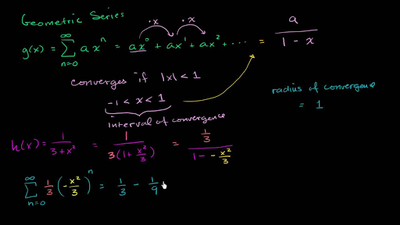 Geometric Series
·x ·x
g(x) = ∑_{n=0}^{∞} a x^n = ax^0 + ax^1 + ax^2 + ··· = a / (1 - x)
converges if |x| < 1
-1 < x < 1
interval of convergence
radius of convergence
= 1
h(x) = 1 / (3 + x^2) = 1 / (3(1 + x^2/3)) = (1/3) / (1 - -x^2/3)
∑_{n=0}^{∞} 1/3 (-x^2/3)^n = 1/3 - 1/9